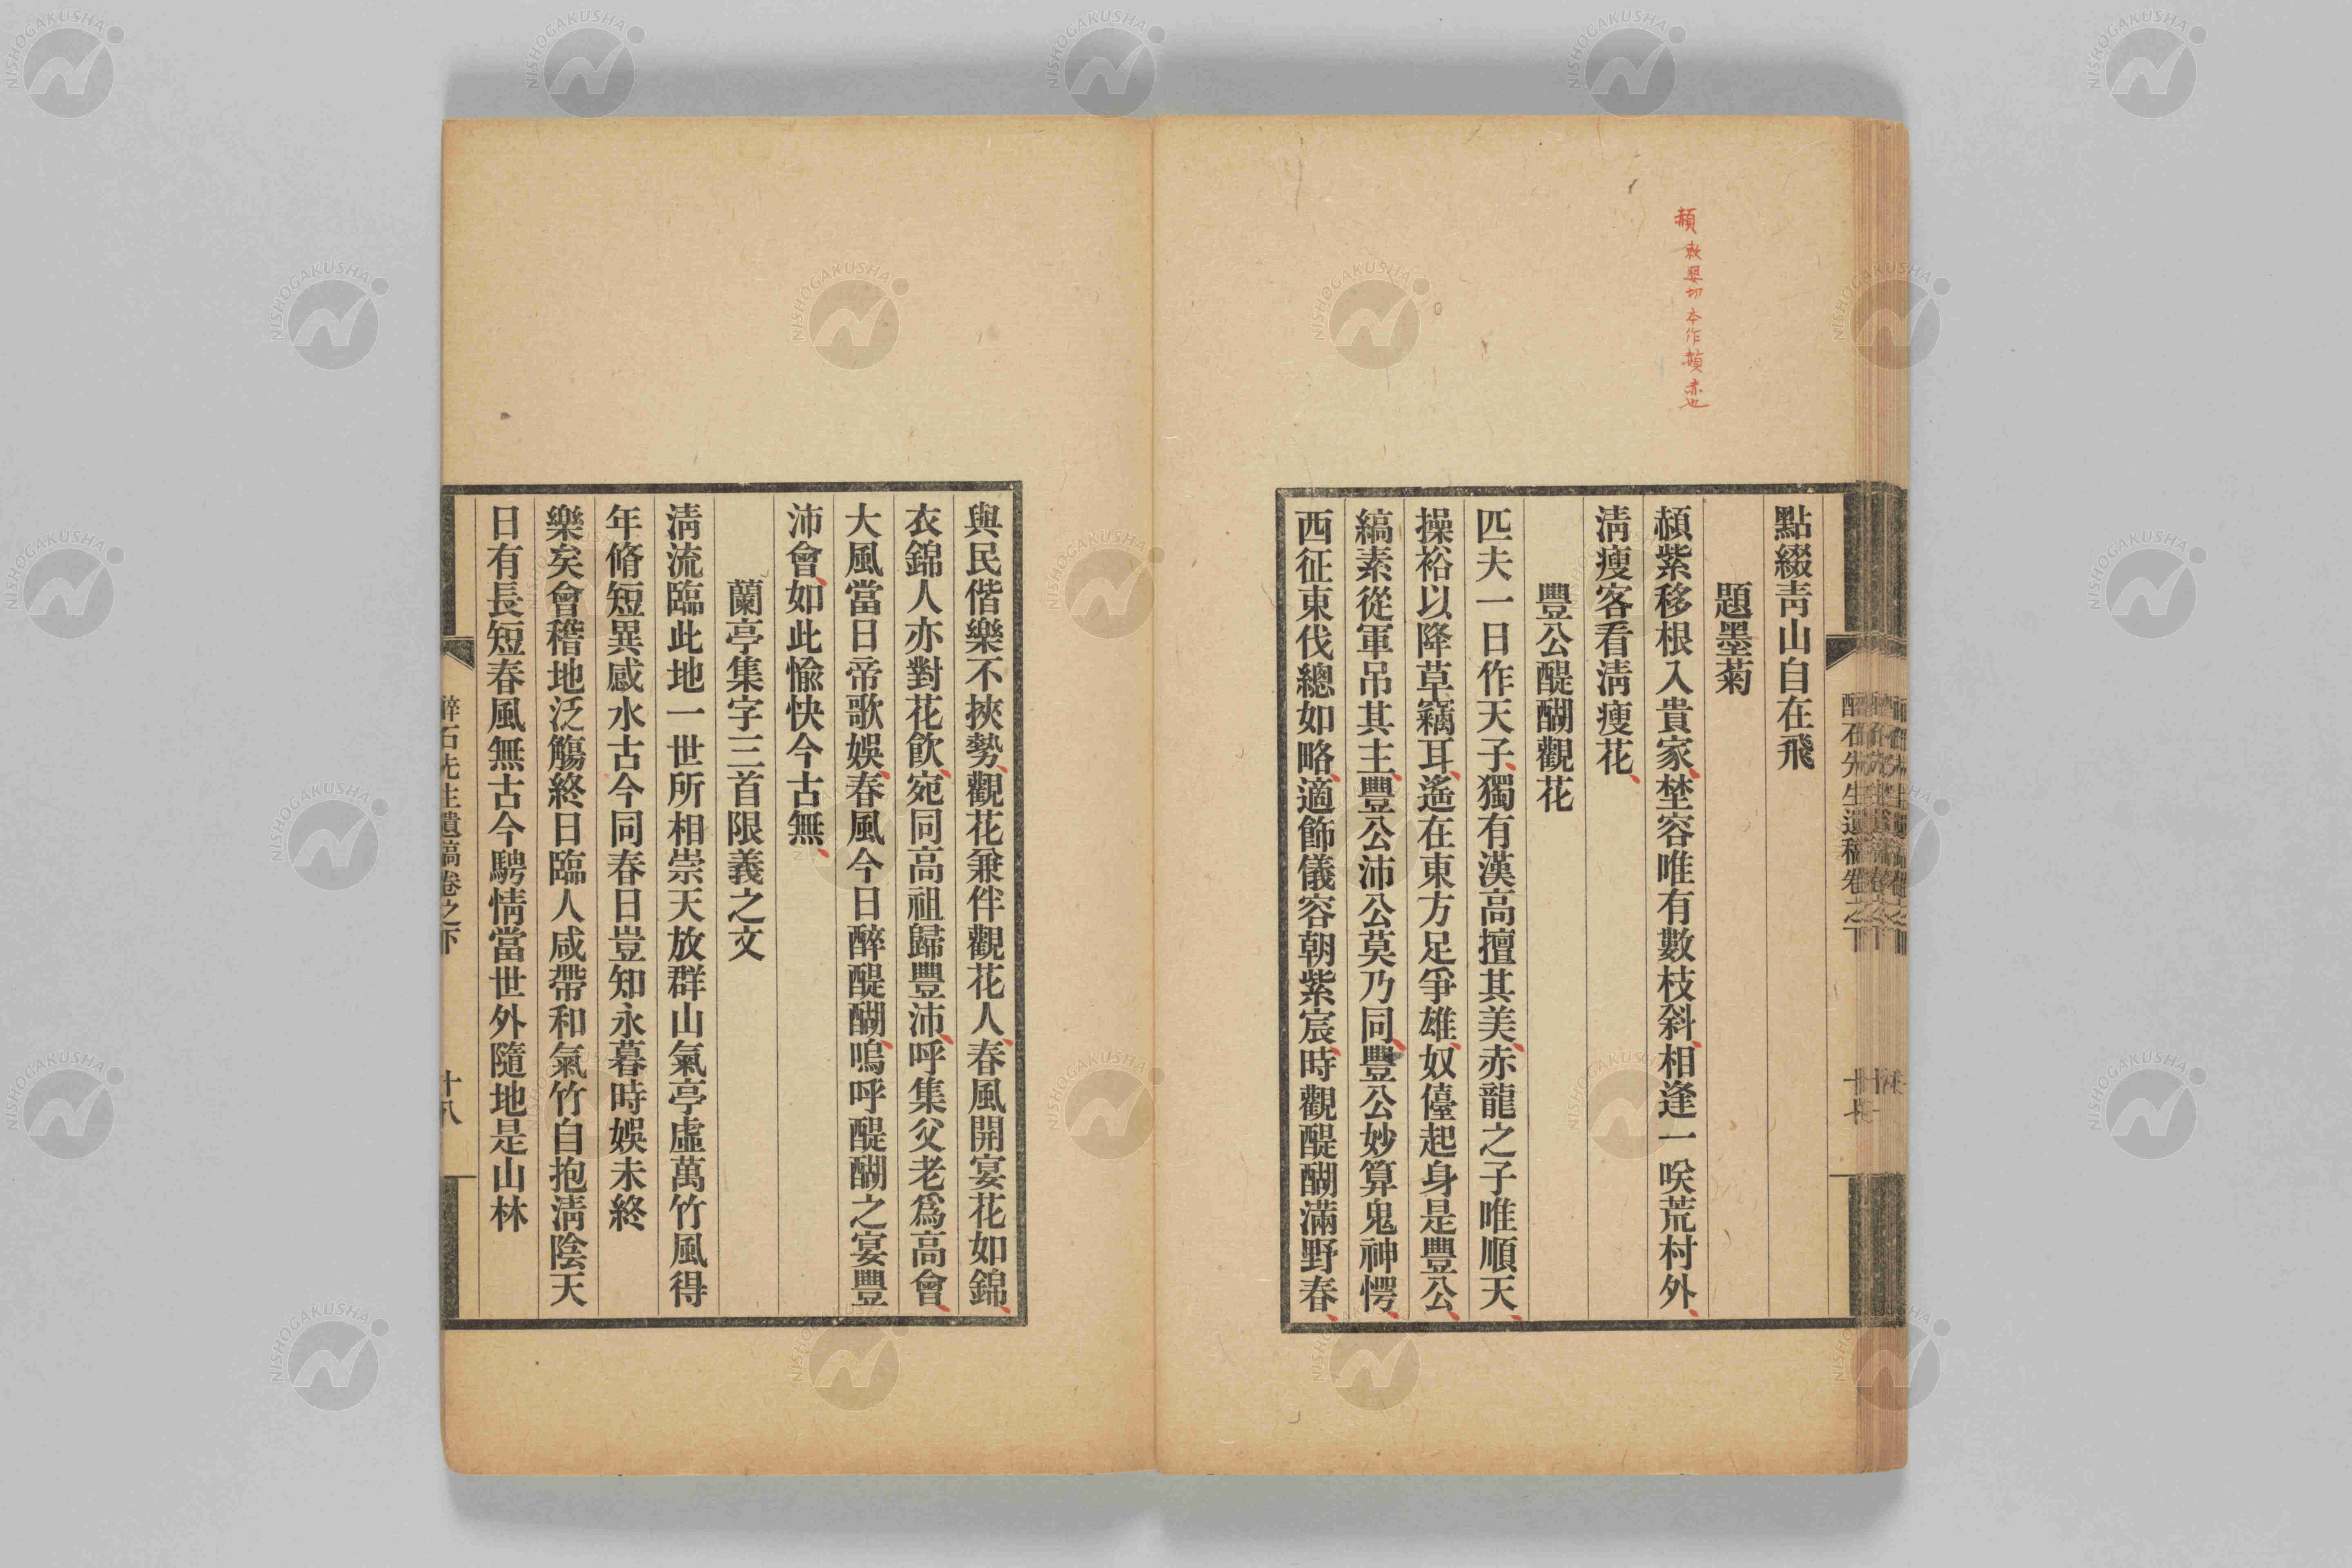 頳 敕嬰切 本作䞓 赤也
點綴靑山自在飛
題墨菊
頳紫移根入貴家埜容唯有數枝斜相逢一咲荒村外
淸瘦客看淸瘦花
豐公醍醐觀花
匹夫一日作天子獨有漢高擅其美赤龍之子唯順天
操裕以降草竊耳遙在東方足爭雄奴儓起身是豐公
縞素從軍吊其主豐公沛公莫乃同豐公妙算鬼神愕
西征東伐總如略適飾儀容朝紫宸時觀醍醐滿野春
與民偕樂不挾勢觀花兼伴觀花人春風開宴花如錦
衣錦人亦對花飮宛同高祖歸豐沛呼集父老爲高會
大風當日帝歌娛春風今日醉醍醐嗚呼醍醐之宴豐
沛會如此愉快今古無
蘭亭集字三首限義之文
淸流臨此地一世所相崇天放群山氣亭虛萬竹風得
年脩短異感水古今同春日豈知永暮時娛未終
樂矣會稽地泛觴終日臨人咸帶和氣竹自抱淸陰天
日有長短春風無古今騁情當世外隨地是山林
醉石先生遺稿卷之下
十八